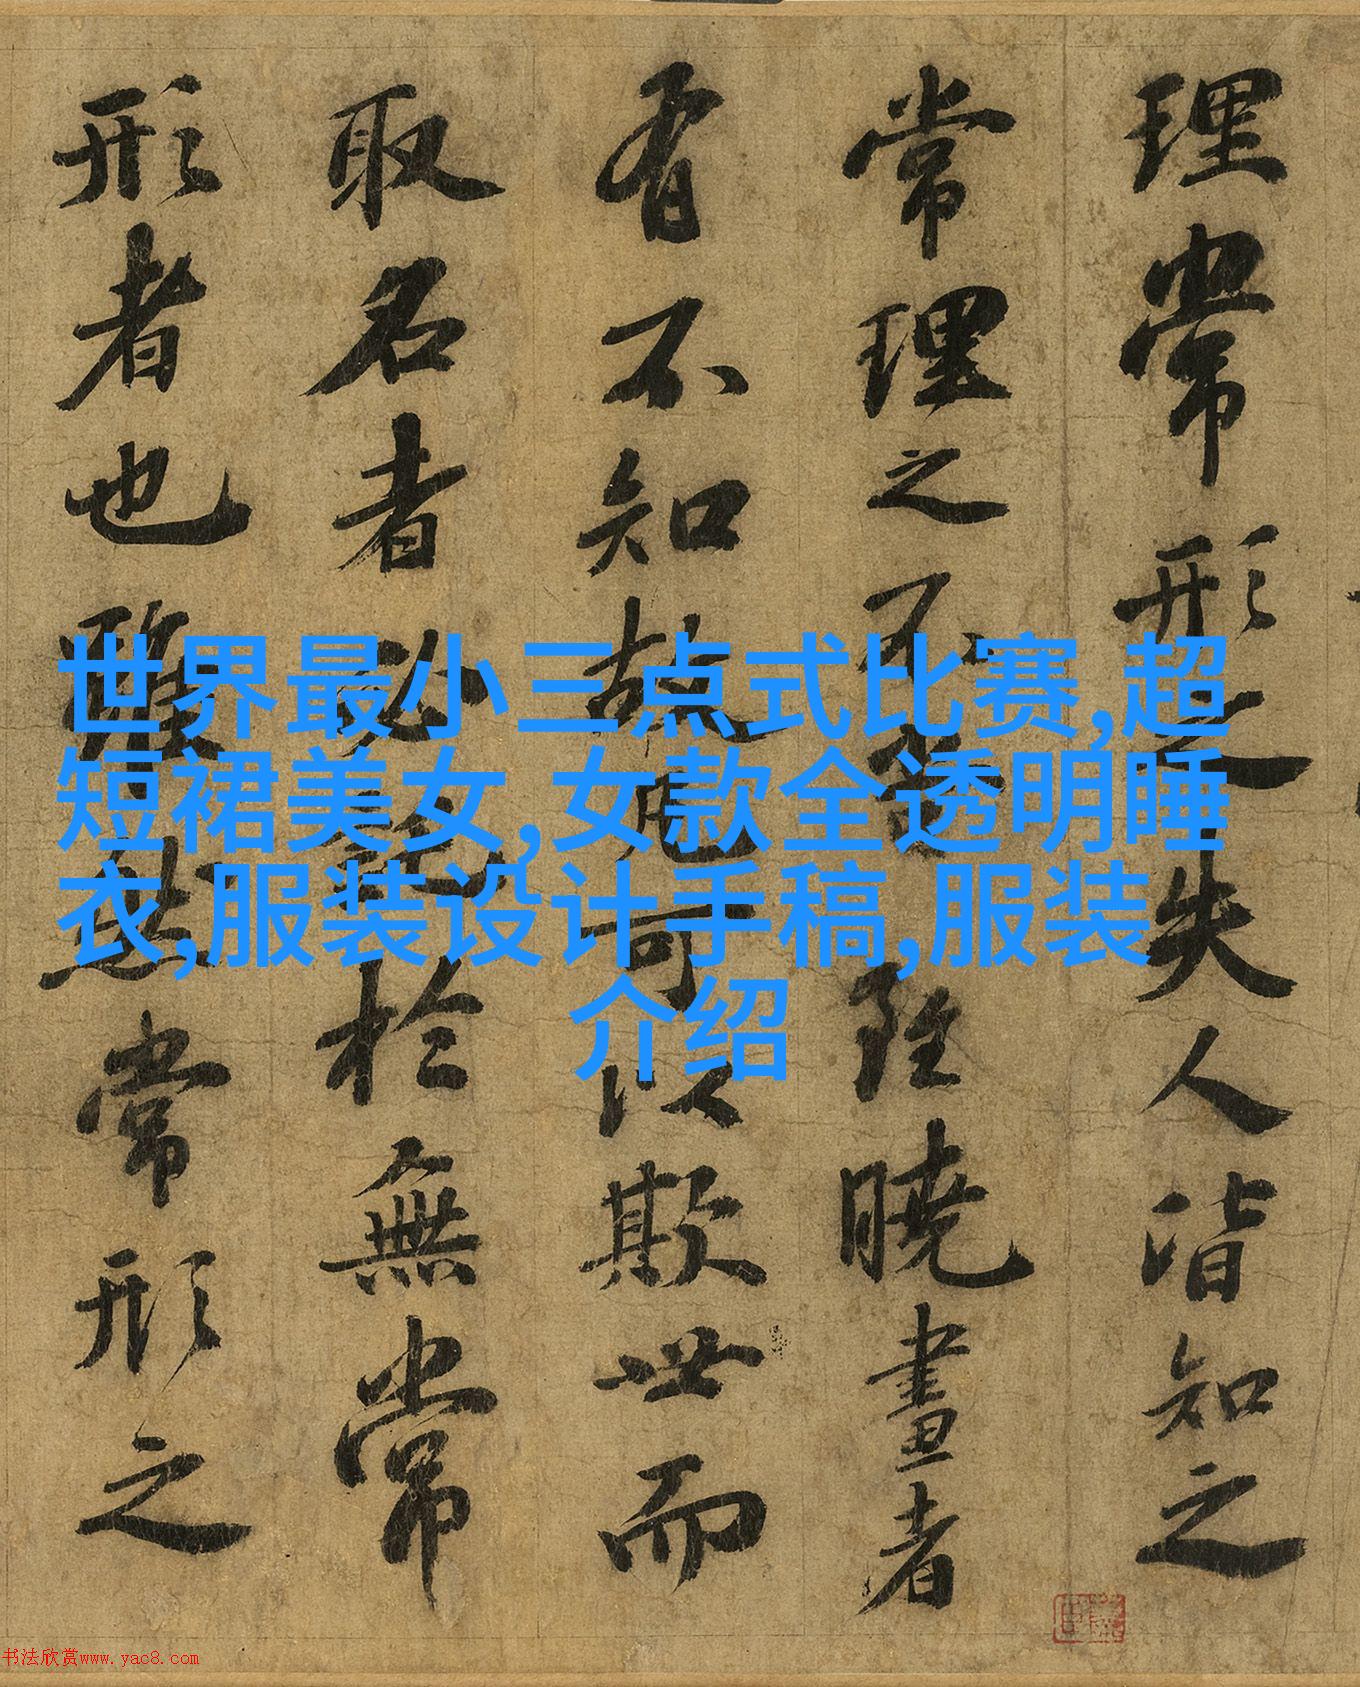 理常形之失人皆知之
常理之不當雖曉畫者
有不知故凡可以欺世而
取名者必託於無常
形者也雖然常形之
世界最小三点式比赛,超
短裙美女,女款全透明睡
衣,服装设计手稿,服装
介绍
书法欣赏www.yac8.com